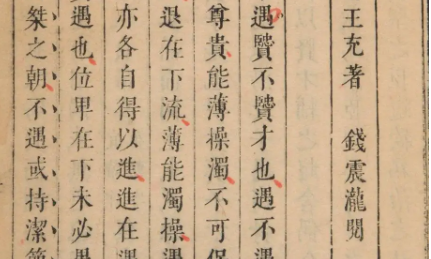 王充著　錢震瀧閱
遇贒不贒才也遇不遇
尊貴能薄操濁不可保
退在下流薄能濁操遇
亦各自得以進進在遇
遇也位卑在下未必愚
桀之朝不遇或持潔節